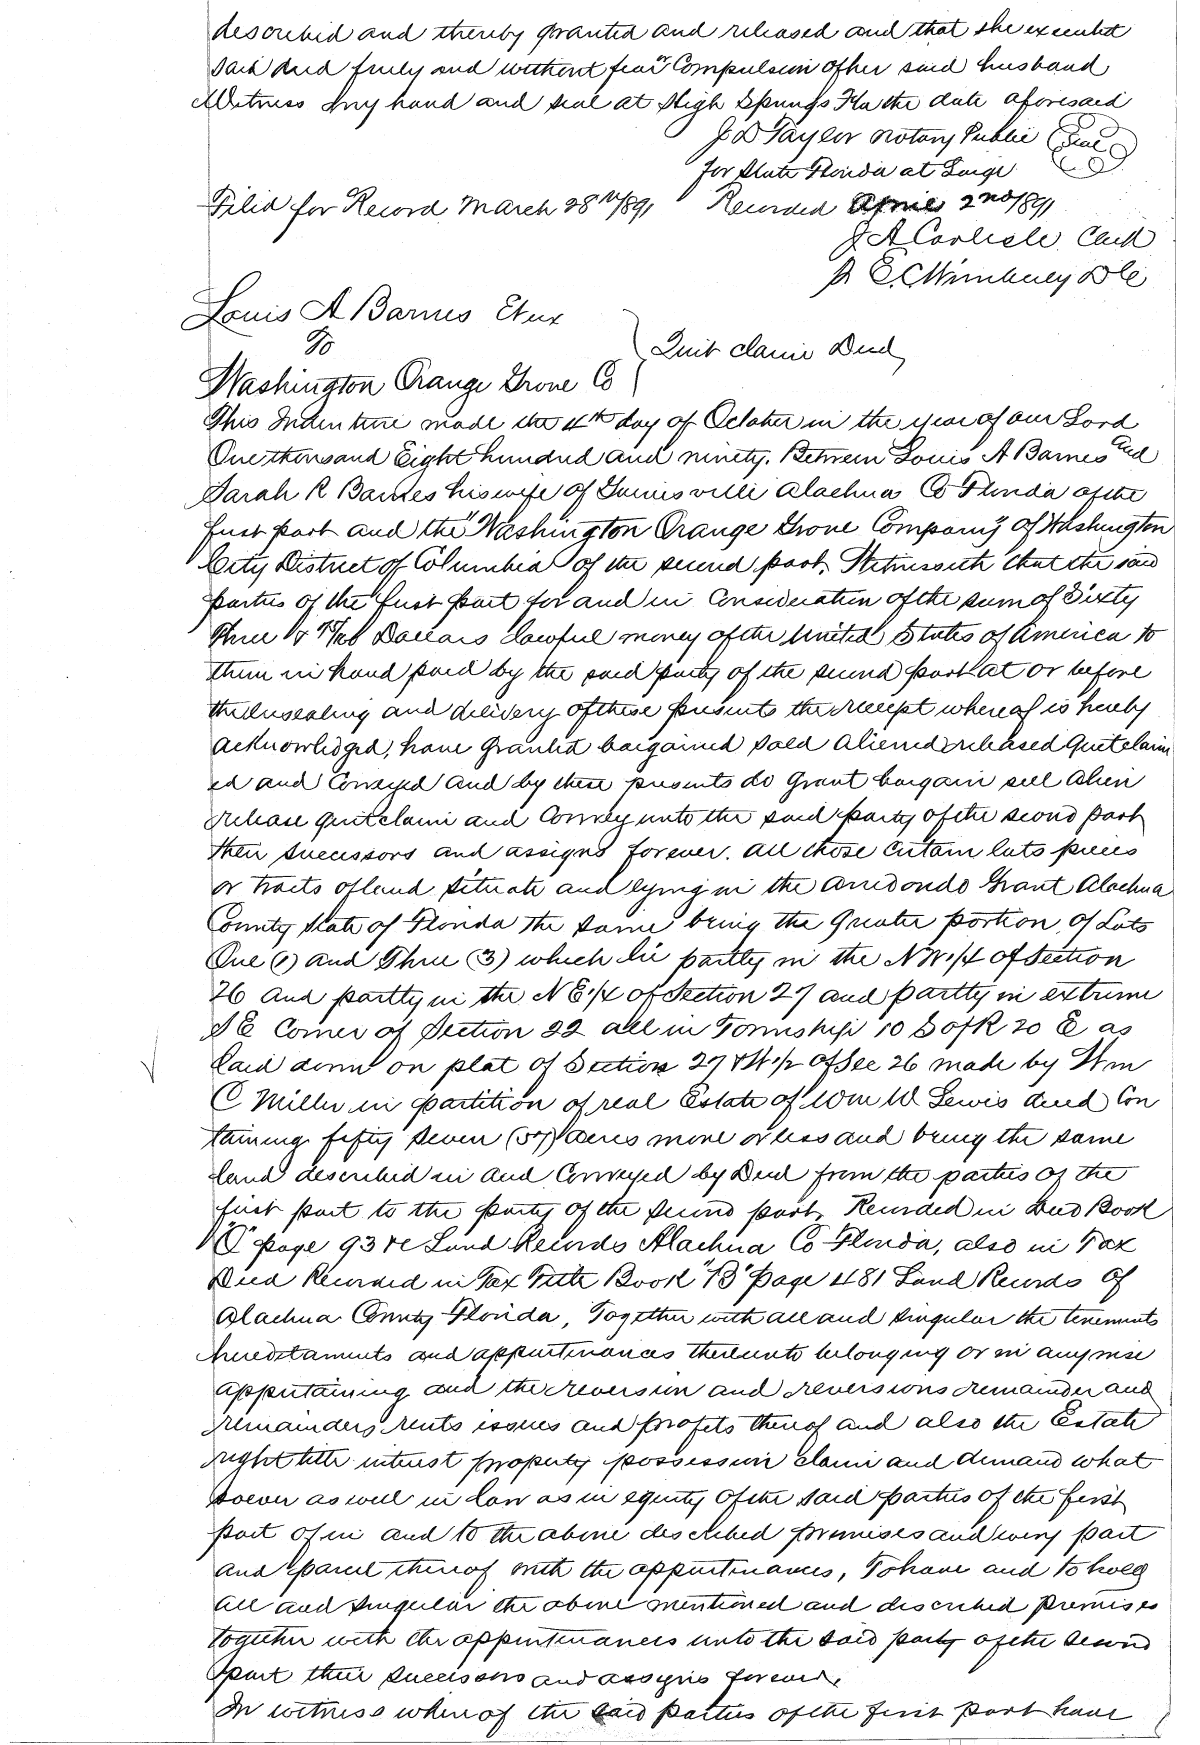 described and thereby granted and released and that she executed
said deed freely and without fear or Compulsion of her said husband
Witness my hand and seal at High Springs Fla the date aforesaid
J D Taylor Notary Public Seal
for State Florida at Large
Filed for Record March 28th/891 Recorded April 2nd/891
J A Carlisle Clerk
E. C. D C
Louis A Barnes Et ux
To
Quit claim Deed
Washington Orange Grove Co
This Indenture made the 4th day of October in the year of our Lord
One thousand Eight hundred and ninety. Between Louis A Barnes and
Sarah R Barnes his wife of Gainesville Alachua Co Florida of the
first part and the "Washington Orange Grove Company" of Washington
City District of Columbia of the second part, Witnesseth that the said
parties of the first part for and in Consideration of the sum of Sixty
Three & Dollars lawful money of the United States of America to
them in hand paid by the said party of the second part at or before
the ensealing and delivery of these presents the receipt whereof is hereby
acknowledged, have granted bargained sold aliened released Quitclaim
ed and Conveyed and by these presents do grant bargain sell alien
release quitclaim and Convey unto the said party of the second part
their successors and assigns forever. all those certain lots pieces
or tracts of land situate and lying in the Arredondo Grant Alachua
County State of Florida the same being the Greater portion of Lots
One (1) and Three (3) which lie partly in the N W 1/4 of Section
26 and partly in the N E 1/4 of Section 27 and partly in extreme
S E Corner of Section 22 all in Township 10 S of R 20 E as
laid down on plat of Section 27 & W 1/2 of Sec 26 made by Wm
C Miller in partition of real Estate of Wm W Lewis decd Con
taining fifty seven (57) acres more or less and being the same
land described in and Conveyed by Deed from the parties of the
first part to the party of the second part, Recorded in Deed Book
page 93 Land Records Alachua Co Florida, also in Tax
Deed Recorded in Tax Title Book "B" page 481 Land Records of
Alachua County Florida, Together with all and singular the tenements
hereditaments and appurtenances thereunto belonging or in any wise
appertaining and the reversion and reversions remainder and
remainders rents issues and profits thereof and also the Estate
right title interest property possession claim and demand what
soever as well in law as in equity of the said parties of the first
part of in and to the above described premises and every part
and parcel thereof with the appurtenances, To have and to hold
all and singular the above mentioned and described premises
together with the appurtenances unto the said party of the second
part their successors and assigns forever.
In witness where of the said parties of the first part have